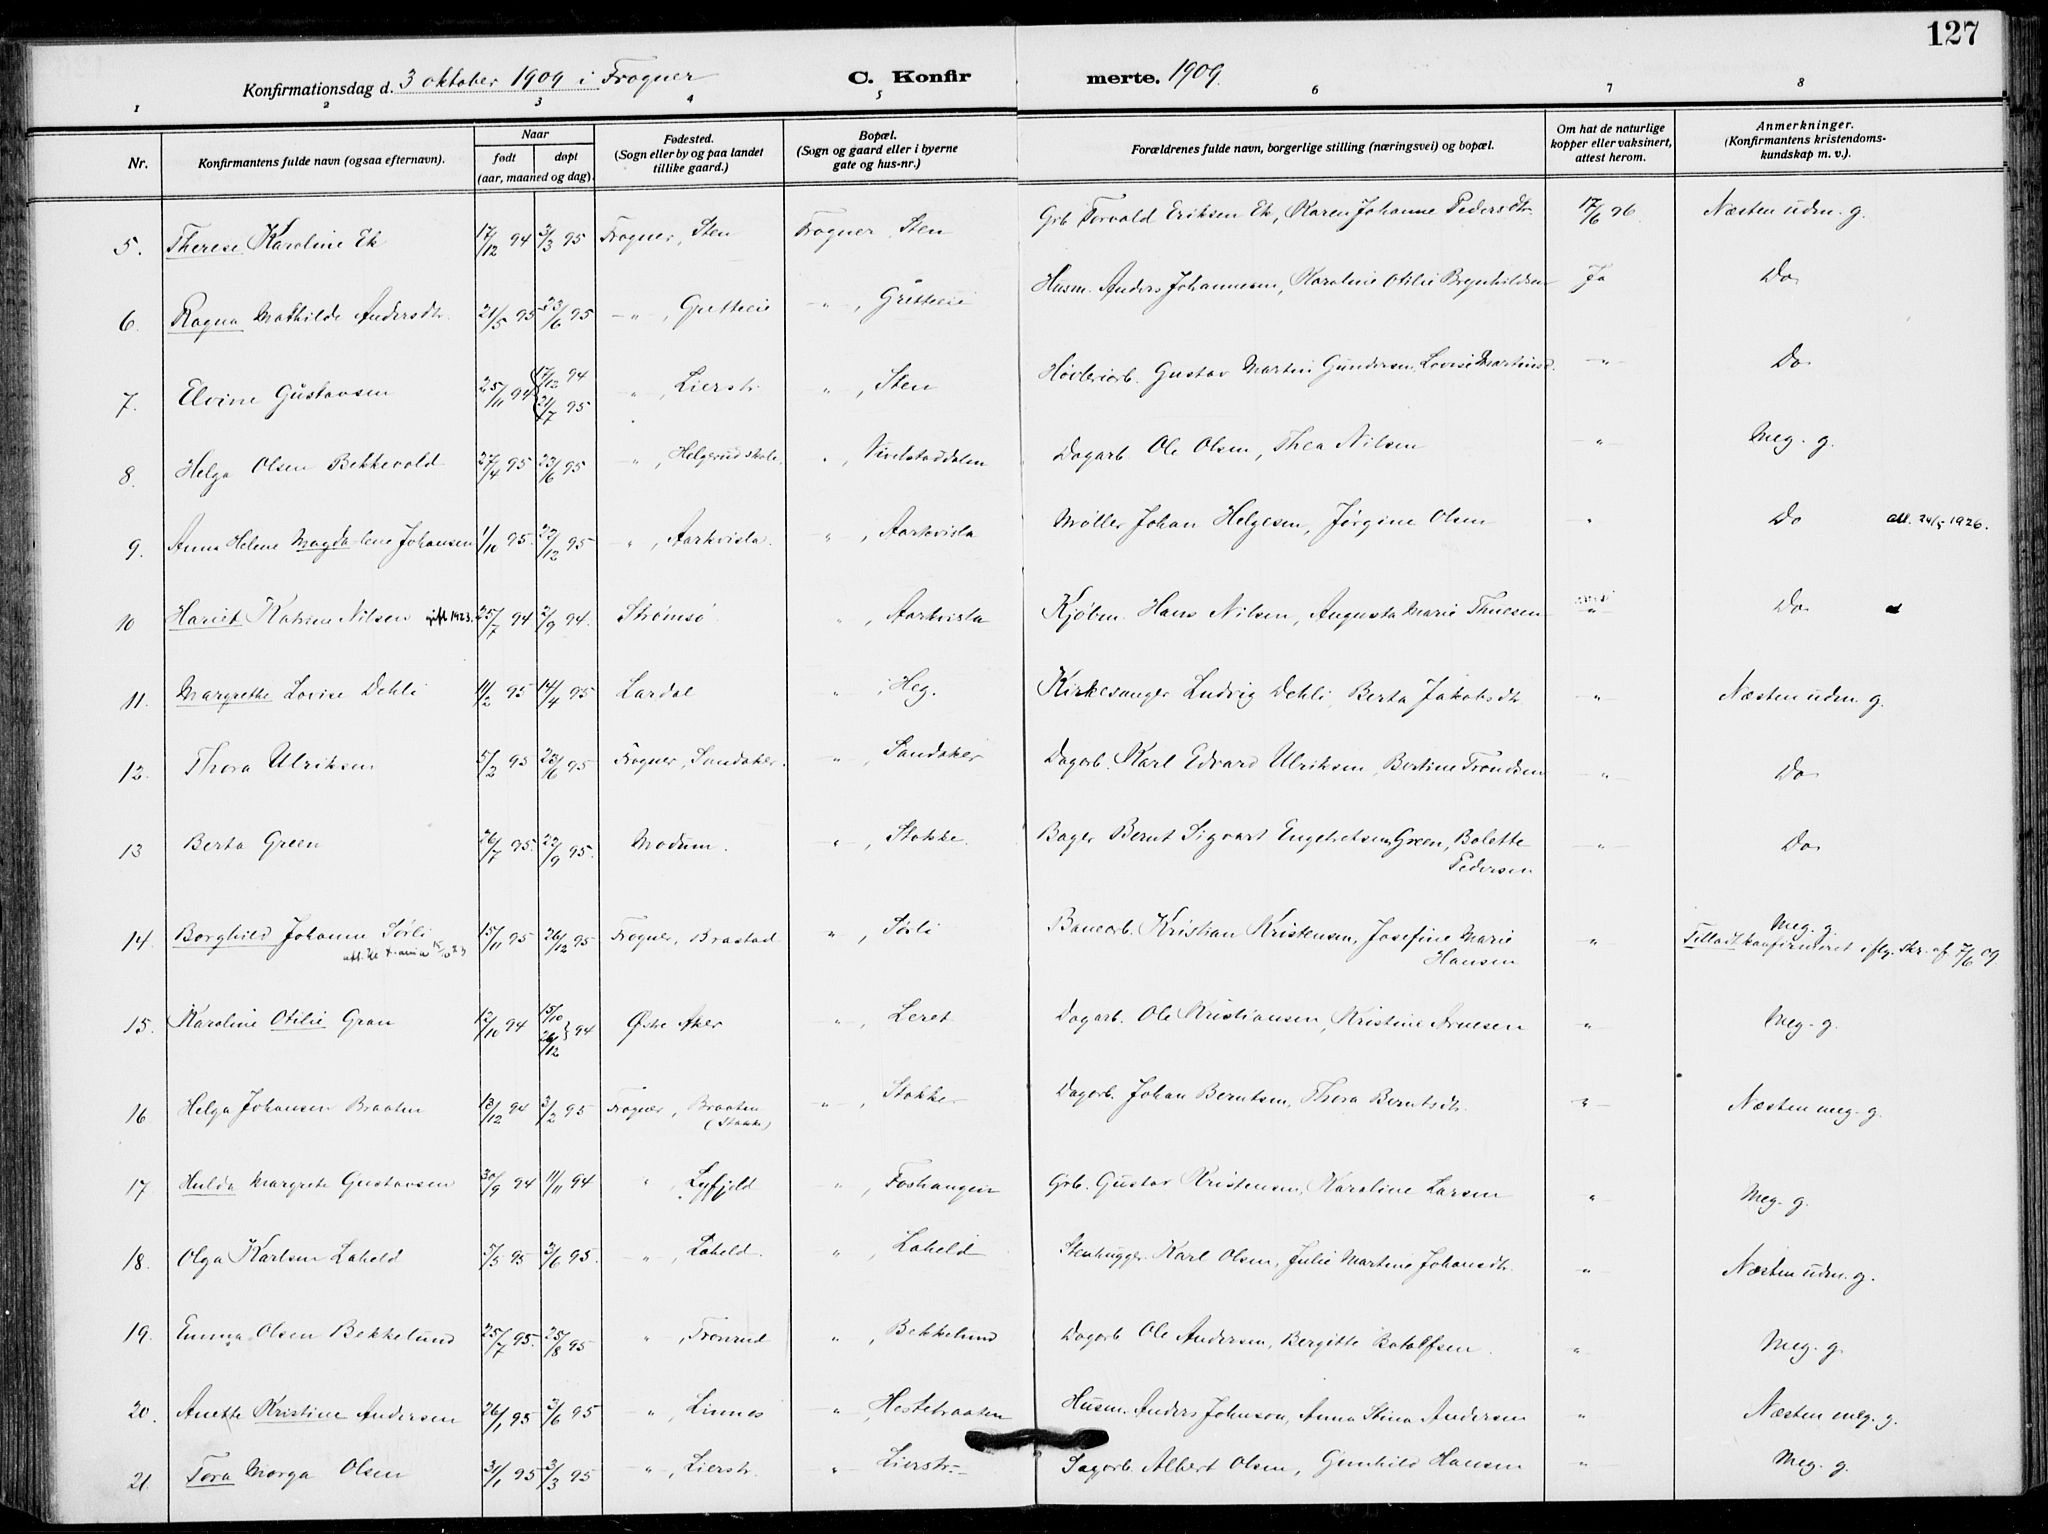 127
Konfirmationsdag d. 3 oktober 1909 i Frogner C. Konfir merte. 1909.
1 2 3 4 5 6 7 8
Nr. Konfirmantens fulde navn (ogsaa efternavn). Naar født døpt (aar, maaned og dag). Fødested. (Sogn eller by og paa landet tillike gaard.) Bopæl. (Sogn og gaard eller i byerne gate og hus-nr.) Forældrenes fulde navn, borgerlige stilling (næringsvei) og bopæl. Om hat de naturlige kopper eller vaksinert, attest herom. Anmerkninger. (Konfirmantens kristendoms-kundskap m. v.).
5. Therese Karoline Ek 17/12 94 3/3 95 Frogner, Sten Frogner Sten Grb. Torvald Eriksen Ek, Karen Johanne Pedersdtr. 17/6 96. Næsten udm. g.
6. Ragna Mathilde Andersdtr. 21/5 95 23/6 95 -"-, Gretteeie -"-, Gretteeie Husm. Anders Johannesen, Karoline Otilie Brynhildsen Ja Do
7. Elvine Gustavsen 25/11 94 17/12 94 21/7 95 -"-, Lierstr. ", Sten Høvleriarb. Gustav Martin Gundersen, Lovise Martinsd. -"- Do
8. Helga Olsen Bekkevold 27/4 95 23/6 95 -"-, Helgerud skole. ", Vivelstaddalen Dagarb. Ole Olsen, Thea Nilsen -"- Meg. g.
9. Anna Helene Magdalene Johansen 1/10 95. 27/12 95 -"-, Aarkvisla. -"-, Aarkvisla Møller Johan Helgesen, Jørgine Olsen " Do att. 24/5 1926.
10 Hariet Katrine Nilsen gift 1923. 25/7 94 2/9 94. Strømsø ", Aarkvisla Kjøbm. Hans Nilsen, Augusta Marie Thuesen -"- Do
11. Margrethe Lovise Dehli 11/2 95 14/4 95 Lardal ", Heg. Kirkesanger Ludvig Dehli, Berta Jakobsdtr. -"- Næsten udm. g.
12. Thora Ulriksen 5/2 95 23/6 95 Frogner, Sandaker. -"-, Sandaker Dagarb. Karl Edvard Ulriksen, Bertine Trondsen -"- Do
13 Berta Green 26/7 95. 22/9 95. Modum. ", Stokke. Bager Bernt Sigvart Engebretsen Green, Bolette Pedersen -"- Do
14. Borghild Johanne Sørli 15/11 95 26/12 95 Frogner, Brastad ", Sørli Banearb. Kristian Kristensen, Josefine Marie Hansen " Meg. g. Tilladt konfirmeret iflg. skr. af 7/6 09
15. Karoline Otilie Gran 12/10 94 15/10 26/12 } 94 Østre Aker -"-, Leret Dagarb. Ole Kristiansen, Kristine Arnesen " Meg. g.
16 Helga Johansen Braaten 13/12 94 3/2 95 Frogner, Braaten (Stokke) -"-, Stokke Dagarb. Johan Berntsen, Thora Berntsdtr. -"- Næsten meg. g.
17 Hulda Margrete Gustavsen 30/9 94 11/11 94 ", Lyfjeld -"-, Foshaugeie Grb. Gustav Kristensen, Karoline Larsen " Meg. g.
18. Olga Karlsen Laheld 5/3 95 3/6 95. -"-, Laheld. ", Laheld Stenhugger Karl Olsen, Julie Martine Johansdtr. -"- Næsten udm. g.
19. Emma Olsen Bekkelund 25/7 95. 25/8 95 ", Tronrud ", Bekkelund Dagarb Ole Andersen, Bergitte Botolfsen. "- Meg. g.
20. Anette Kristine Andersen 26/1 95 3/6 95 -"-, Linnes -"-, Hestebraaten Husm. Anders Johnson, Anna Stina Andersen " Næsten meg. g.
21 Tora Marga Olsen 31/1 95 3/3 95 -"-, Lierstr. -"- Lierstr. Sagarb. Albert Olsen, Gunhild Hansen -"- Meg. g.